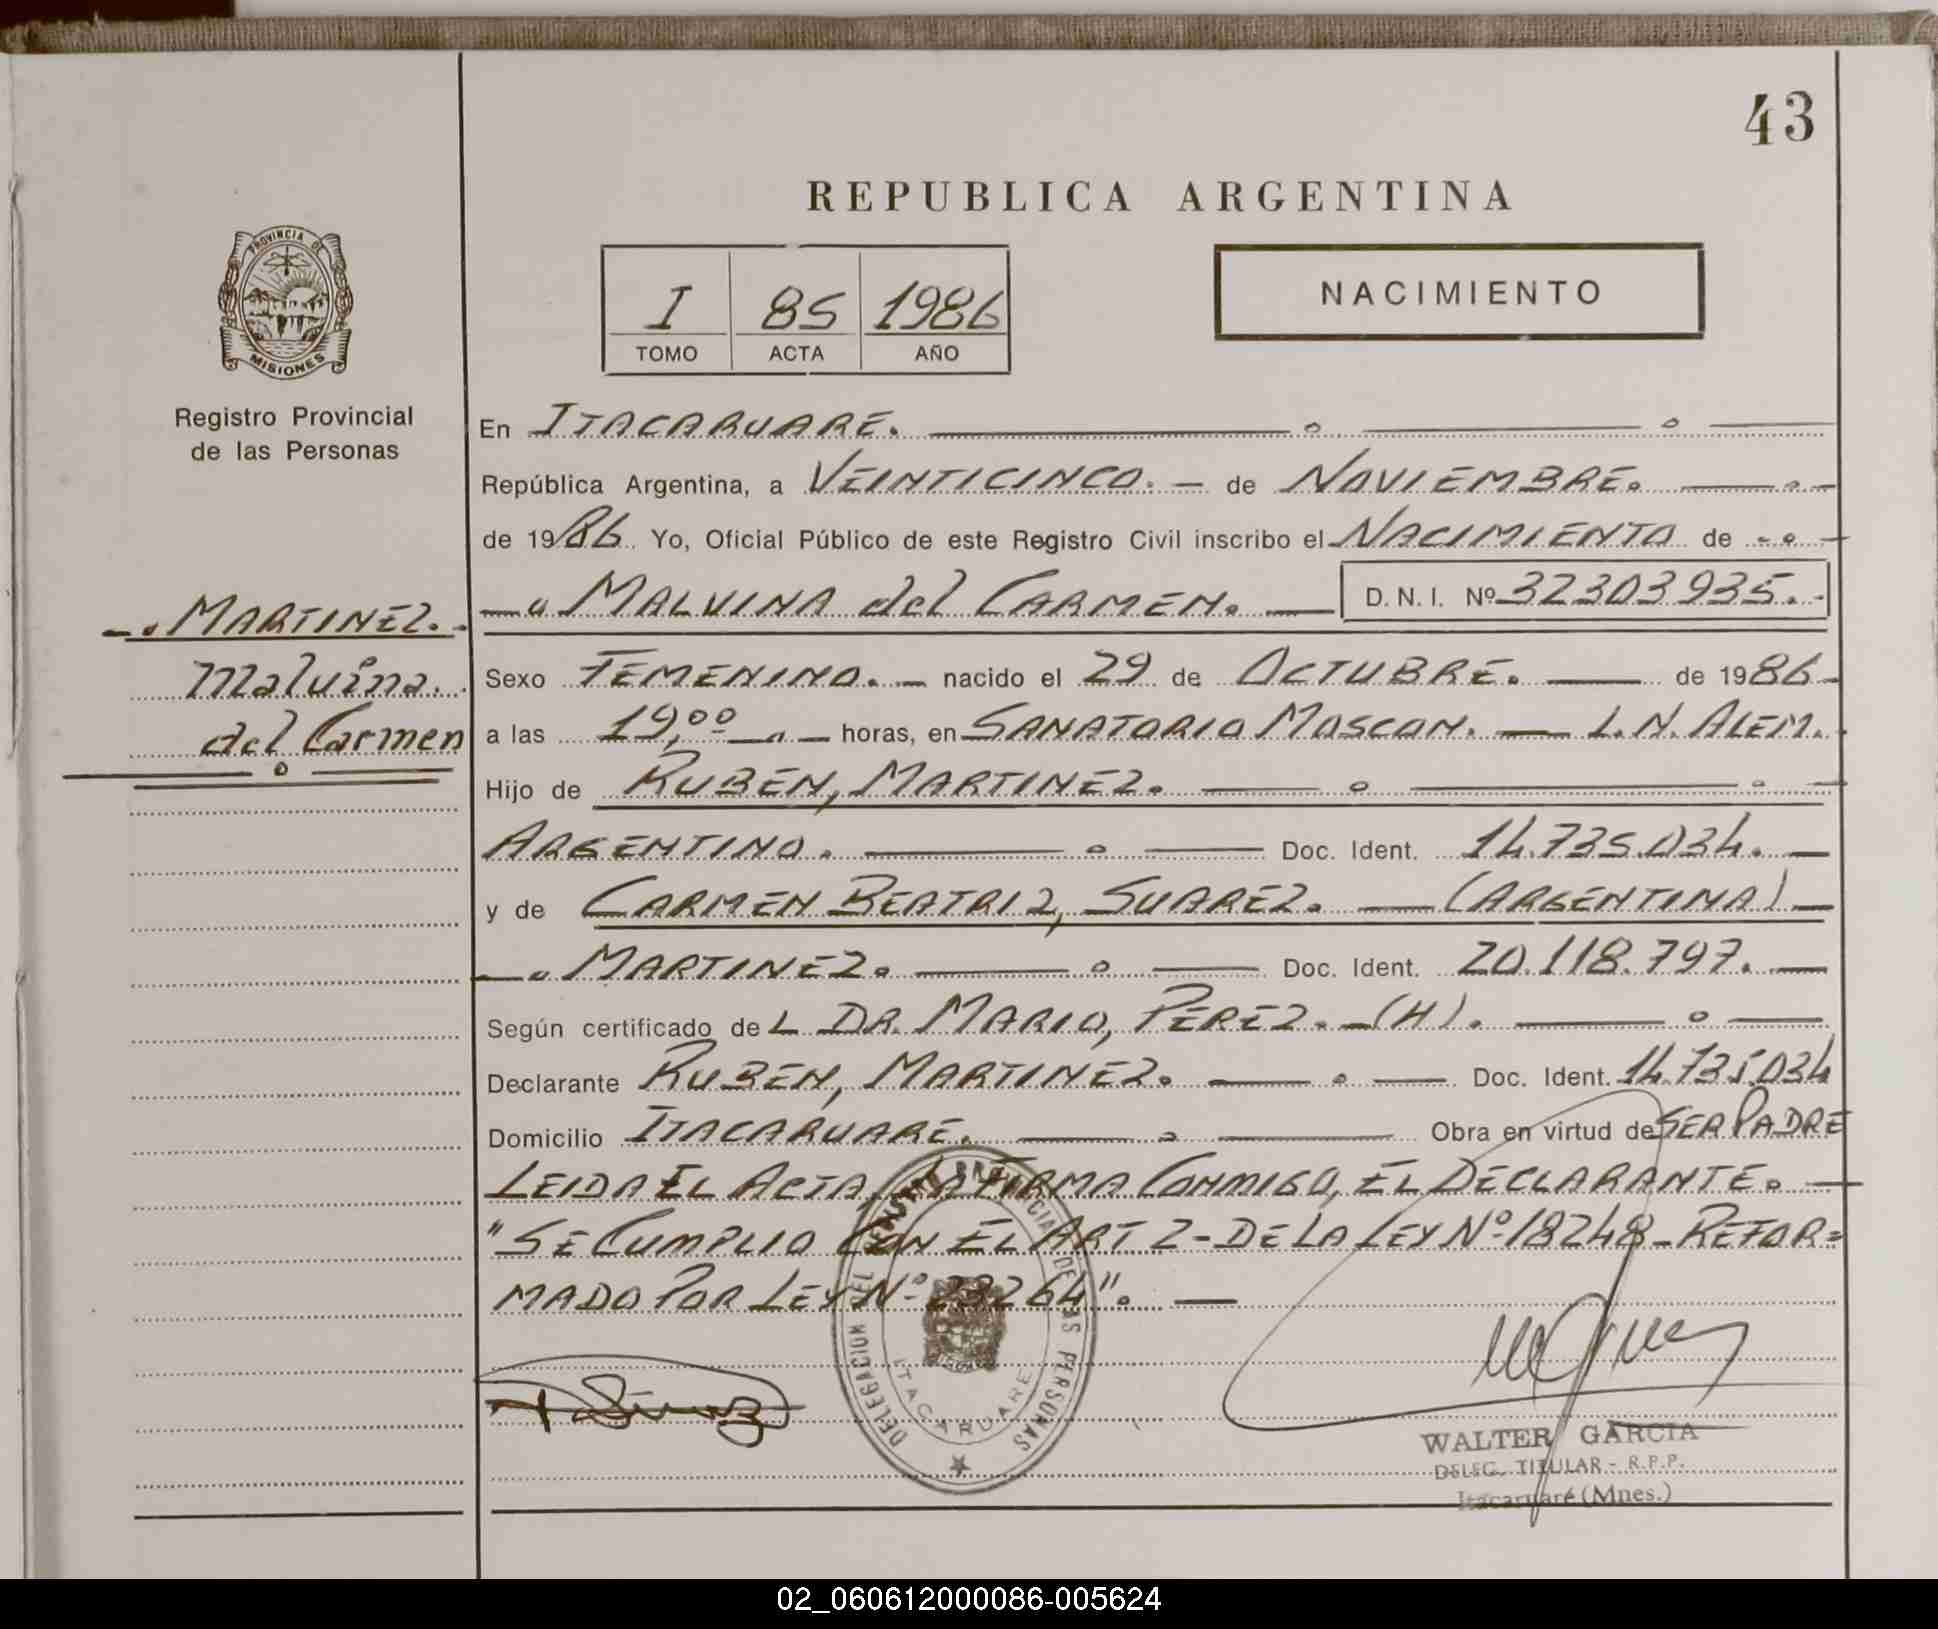 43
REPUBLICA ARGENTINA
I 85 1986
TOMO ACTA AÑO
NACIMIENTO
PROVINCIA DE
MISIONES
Registro Provincial
de las Personas
MARTINEZ.
Malvina
del Carmen
En ITACARUARE.
República Argentina, a VEINTICINCO. — de NOVIEMBRE.
de 1986 Yo, Oficial Público de este Registro Civil inscribo el NACIMIENTO de
MALVINA del CARMEN. — D.N.I. Nº 32303935.
Sexo FEMENINO. — nacido el 29 de OCTUBRE. — de 1986
a las 19,00 — horas, en SANATORIO MOSCON. — L.N. ALEM.
Hijo de RUBEN, MARTINEZ.
ARGENTINO. — Doc. Ident. 14.735.034. —
y de CARMEN BEATRIZ, SUAREZ. — (ARGENTINA) —
MARTINEZ. — Doc. Ident. 20.118.797. —
Según certificado de L DR. MARIO, PEREZ. — (H).
Declarante RUBEN, MARTINEZ. — Doc. Ident. 14.735.034
Domicilio ITACARUARE. — Obra en virtud de SER PADRE
LEIDA EL ACTA, LA FIRMA CONMIGO, EL DECLARANTE. —
"SE CUMPLIO CON EL ART 2 - DE LA LEY Nº 18248 - REFOR=
MADO POR LEY Nº 23264". —
DELEGACION DEL REGISTRO PROVINCIAL DE LAS PERSONAS
ITACARUARE
WALTER GARCIA
DELEG. TITULAR - R.P.P.
Itacaruaré (Mnes.)
02_060612000086-005624